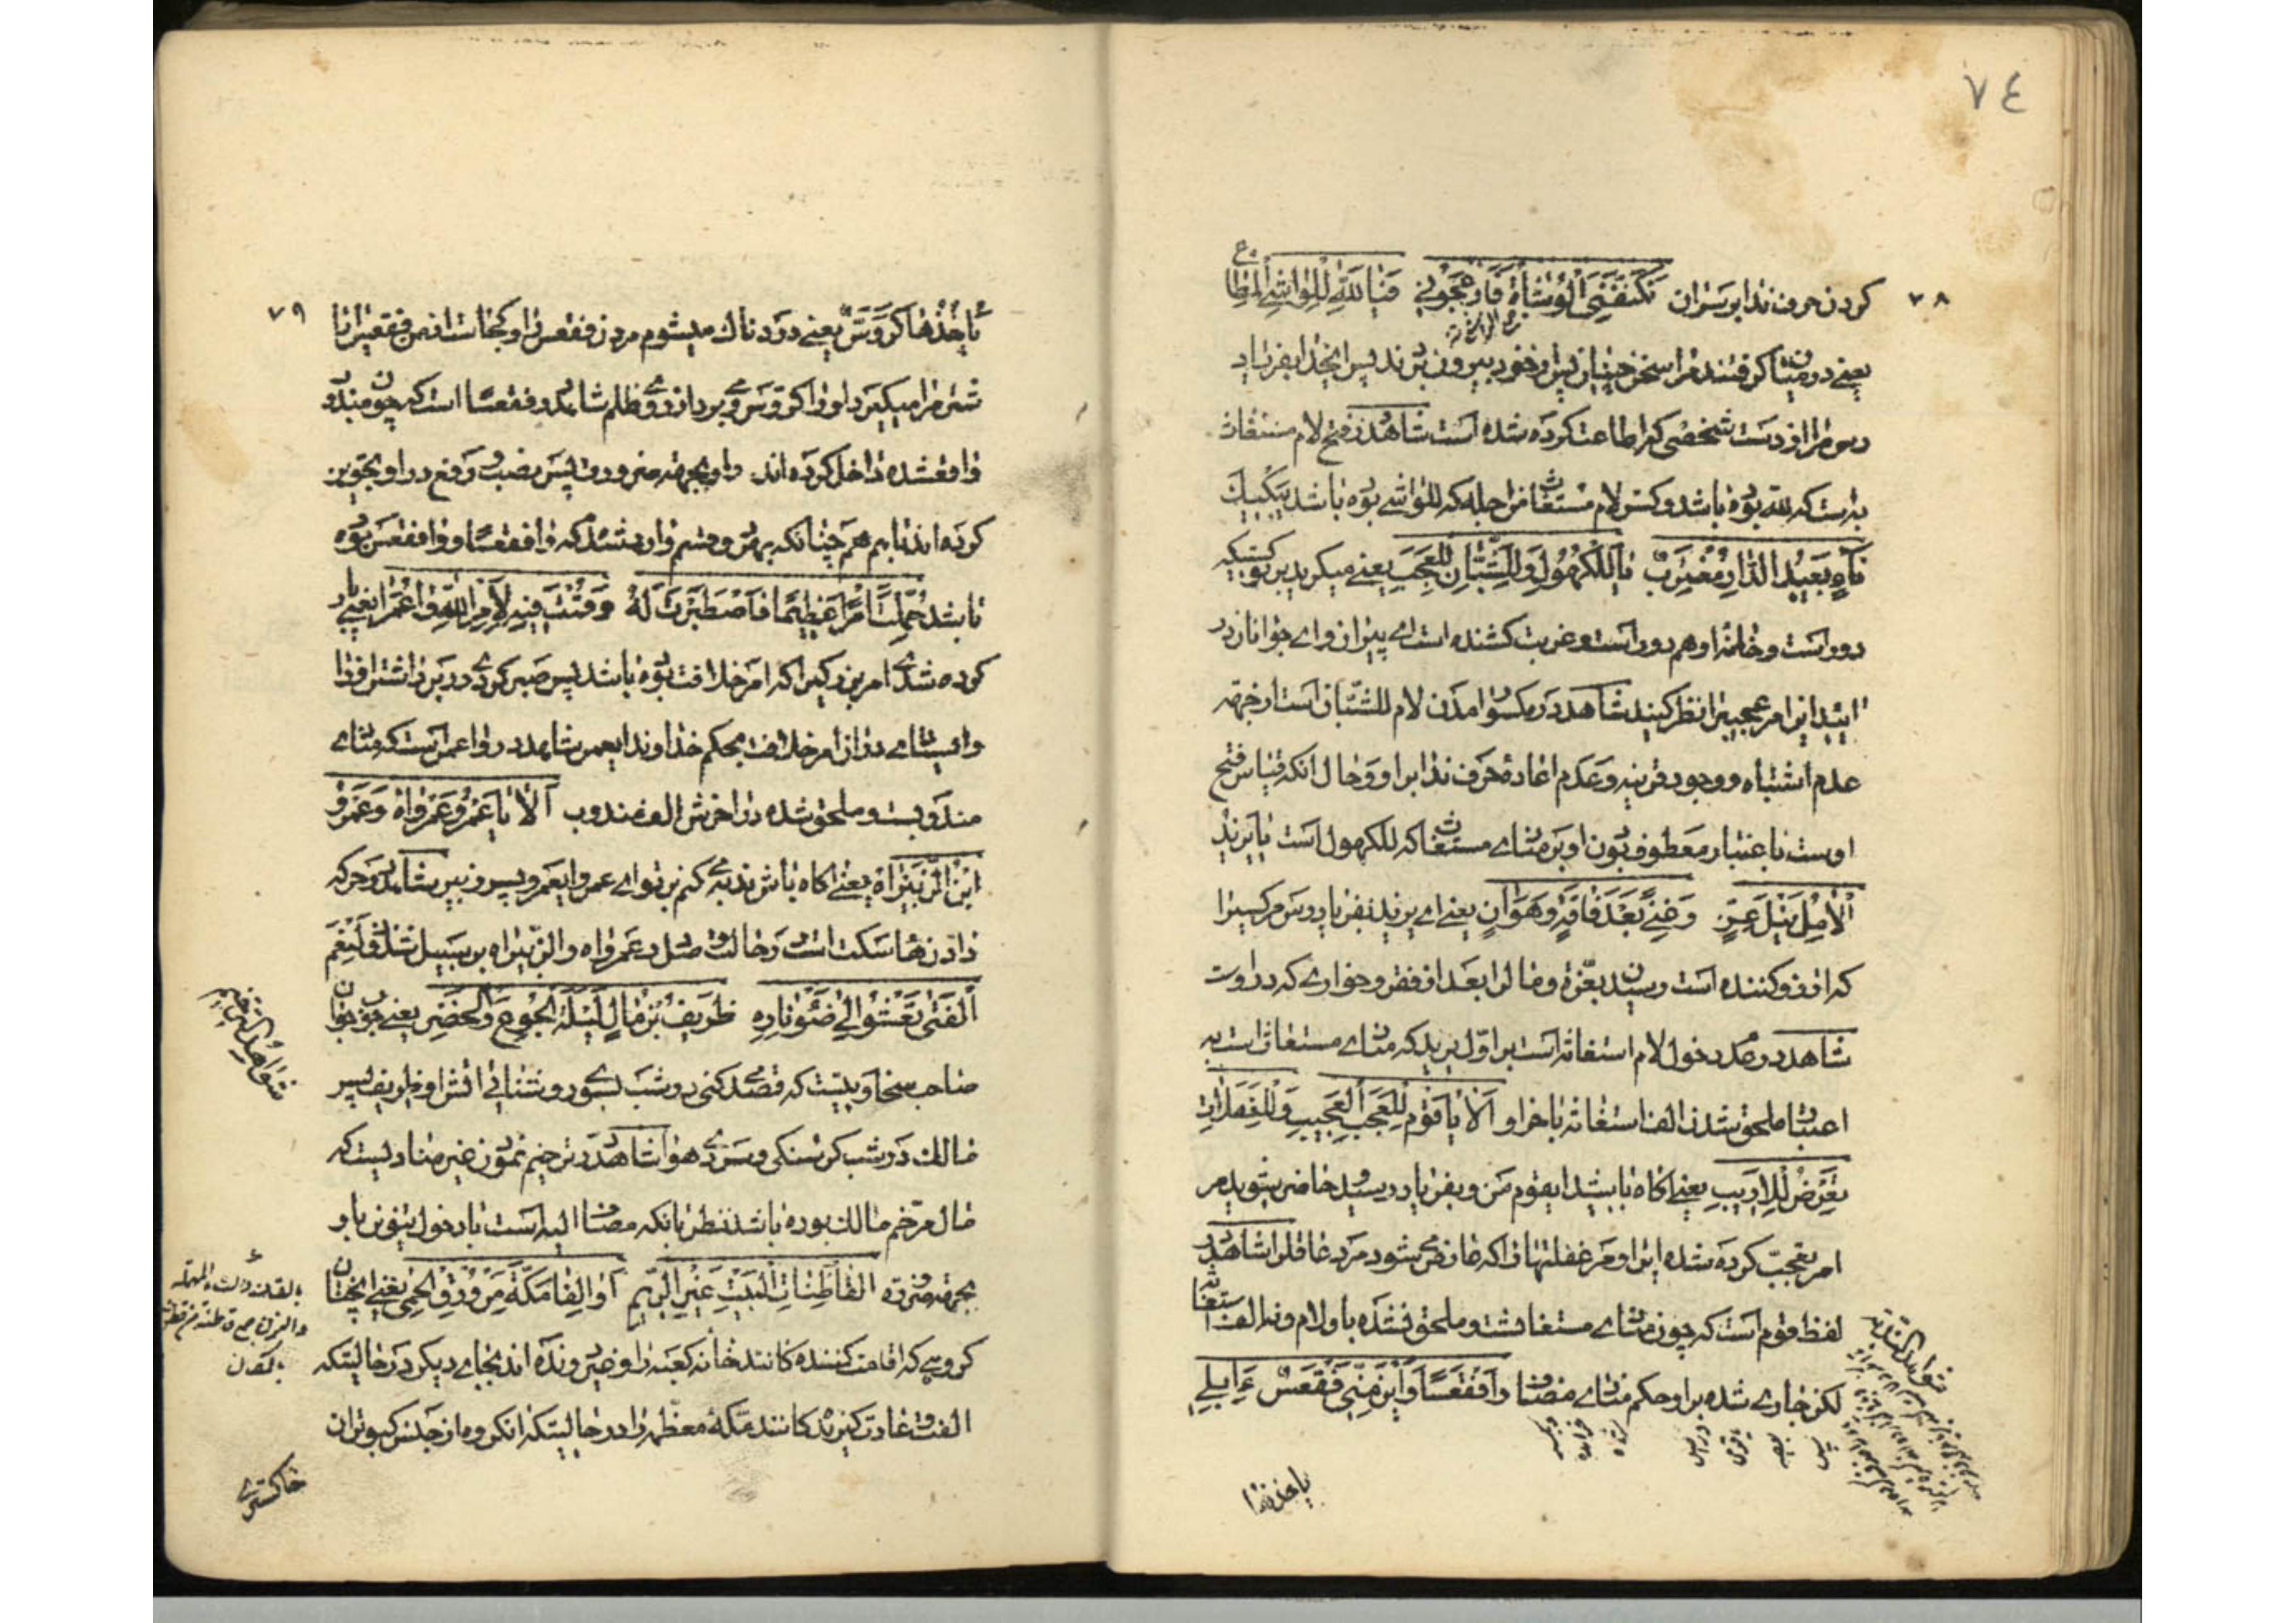 ٧٤
٧٨
کردن حرف ندا بر سر ان تَكَنَّفَنِي الْوُشَاةُ فَأَزْعَجُونِي فَيَا لَلَّهِ لِلْوَاشِي الْمُطَاعِ
یعنے در میان کرفتند مرا سخن چینان پس از خود بیرون بردند پس ایخدا بفریاد
رس مرا از دست شخصی که اطاعت کرده شده است شاهد در فتح لام مستغاث
به است که لله بوده باشد و کسر لام مستغاث من اجله که للواشے بوده باشد یَبْكِيكَ
نَاءٍ بَعِيدُ الدَّارِ مُغْتَرِبٌ يَا لَلْكُهُولِ وَلِلشُّبَّانِ لِلْعَجَبِ یعنے میکرید بر تو کسیکه
دور است و خانه او هم دور است و غربت کشنده است اے پیران و اے جوانان در
ائید این امر عجیب را نظر کنید شاهد در مکسور امدن لام للشبان است از جهه
عدم اشتباه و وجود قرینه و عدم اعاده حرف ندا بر او و حال انکه قیاس فتح
اوست باعتبار معطوف بودن او بر مناے مستغاث که للکهول است يَا يَزِيدَا
لِآمِلٍ نَيْلَ عِزٍّ وَغِنًى بَعْدَ فَاقَةٍ وَهَوَانٍ یعنے اے یزید بفریاد رس مر کسیرا
که ارزو کننده است رسیدن بعزة و مال را بعد از فقر و خوارے که در اوست
شاهد در عدم دخول لام استغاثه است بر اول یزید که مناے مستغاث است به
اعتبار ملحق شدن الف استغاثه باخر او أَلَا يَا قَوْمِ لِلْعَجَبِ الْعَجِيبِ وَلِلْغَفَلَاتِ
تَعْرِضُ لِلْأَرِيبِ یعنے اکاه باشید ایقوم من و بفریاد رسید و حاضر بشوید مر
امر تعجب کرده شده ایرا و مر غفلتهائی را که عارض مے شود مرد عاقل را شاهد در
لفظ قوم است که چون مناے مستغاث شده و ملحق نشده باو لام و نه الف استغاثه
لکن جارے شده بر او حکم مناے مضاف وَا فَقْعَسًا وَأَيْنَ مِنِّي فَقْعَسٌ أَإِبِلِي
یاخذها
٧٩
يَأْخُذُهَا كَرَوَّسُ یعنے درد ناك میشوم مر دن فقعس را و کجاست از من فقعس ایا
شتر مرا میکیرد او را کروس و برد از روے ظلم شاهد در فقعسا است که چون مندوب
واقع شده داخل کرده اند بر او بجهه ضرورة پس نصب و رفع در او تجویز
کرده اند با هم همچنانکه بهر دو قسم وارد شده که وا فقعسا و وا فقعس بوده
باشد حُمِّلْتَ أَمْرًا عَظِيمًا فَاصْطَبَرْتَ لَهُ وَقُمْتَ فِيهِ بِأَمْرِ اللَّهِ يَا عُمَرَا یعنے بار
کرده شدے امر بزرکیرا که امر خلافت بوده باشد پس صبر کردے در برداشتن او را
و ایستادے در ان امر خلافت بحکم خداوند ایعمر شاهد در وا عمرا است که مناے
مندوبست و ملحق شده در اخرش الف مندوب أَلَا يَا عَمْرُو عَمْرَاهُ وَعَمْرُو
ابْنُ الزُّبَيْرَاهُ یعنے اکاه باش ندبه مے کنم بر تو اے عمرو ایعمرو پسر زبیر شاهد در حرکه
دادن ها سکت است در حالت وصل در عمرواه و الزبیراه بر سبیل شذوذ لَنِعْمَ
الْفَتَى تَعْشُو إِلَى ضَوْءِ نَارِهِ طَرِيفُ بْنُ مَالٍ لَيْلَةَ الْجُوعِ وَالْخَصَرِ یعنے خوب جوان
صاحب سخاوتیست که قصد مے کنی در شب بسوے روشنائی اتش او طریف پسر
مالك در شب کرسنکی و سردے هوا شاهد در ترخیم نمودن غیر مناد یست که
مال مرخم مالك بوده باشد نظر بانکه مضاف الیه است با دخول تنوین باو
بجهه ضرورة الْقَاطِنَاتِ الْبَيْتَ غَيْرِ الرُّيَّمِ أَوَالِفًا مَكَّةَ مِنْ وُرْقِ الْحَمِي یعنے انچنان
کروهے که اقامت کننده کانند خانه کعبه را و غیر رونده اند بجاے دیکر در حالیتکه
الفت و عادت کیرنده کانند مکه معظمه را در حالیتکه انکروه از جنس کبوتران
شواهد الترخیم
خاکسترے